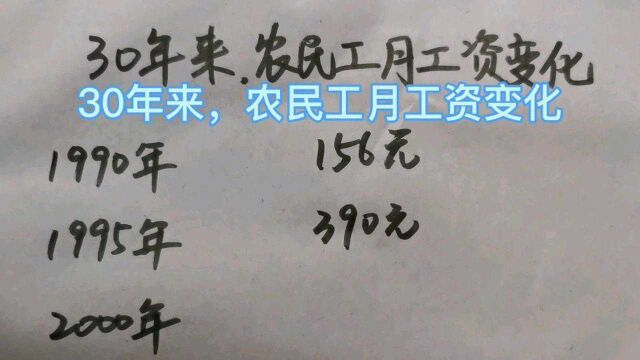 30年来,农民工月工资变化
30年来，农民工月工资变化
1990年 156元
1995年 390元
2000年